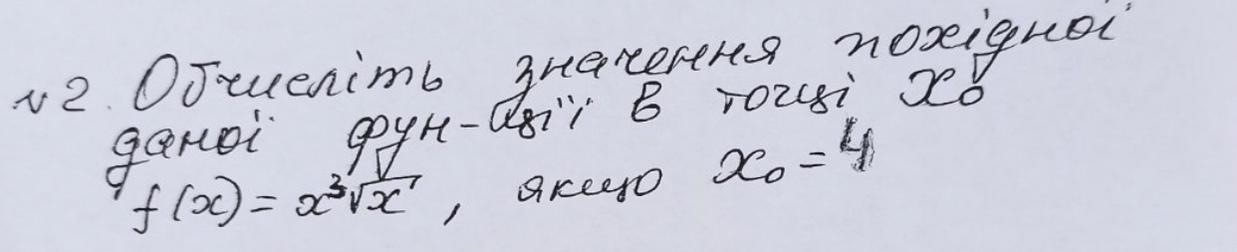 №2. Обчисліть значення похідної
даної фун-ції в точці x₀
f(x) = x³√x, якщо x₀ = 4